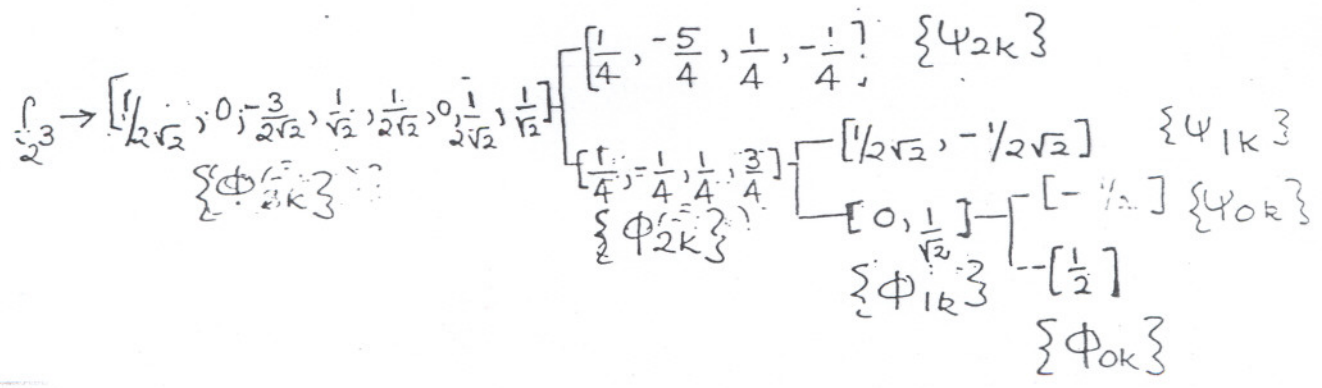 f_{2^3} → [1/2√2, 0, -3/2√2, 1/√2, 1/2√2, 0, 1/2√2, 1/√2]
{Φ_{3k}}
[1/4, -5/4, 1/4, -1/4] {Ψ_{2k}}
[1/4, -1/4, 1/4, 3/4]
{Φ_{2k}}
[1/2√2, -1/2√2] {Ψ_{1k}}
[0, 1/√2]
{Φ_{1k}}
[-1/2] {Ψ_{0k}}
[1/2]
{Φ_{0k}}